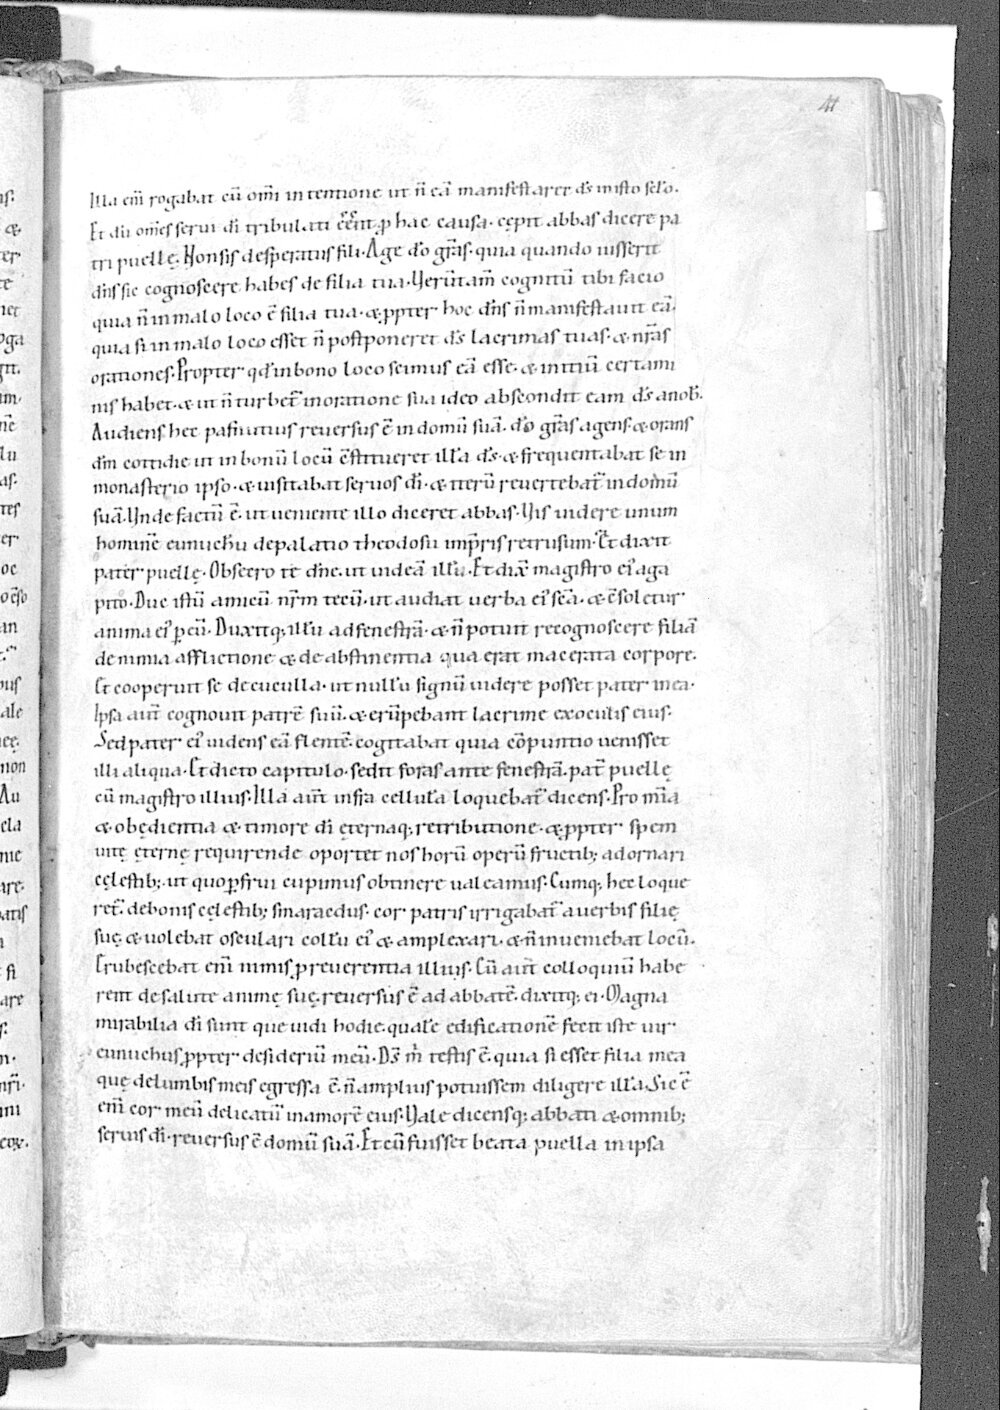 41
Illa eni͂ rogabat cu͂ omi͂ intentione ut n̄ ea͂ manifestaret ds̄ in isto sc̄lo.
Et du͂ om̄s serui di͂ tribulati ēēnt ꝓ hac causa. cępit abbas dicere pa
tri puellę. Nonsis desperatus fili. Age do͂ gra͂s. quia quando iusserit
dn̄s sic cognoscere habes de filia tua. Ueru͂tam̄ cognitu͂ tibi facio
quia n̄ in malo loco ē filia tua. & ꝓpter hoc dn̄s n̄ manifestauit ea͂.
quia si in malo loco esset n̄ postponeret ds̄ lacrimas tuas. & nr̄as
orationes. Propter qd̄ in bono loco scimus ea͂ esse. & initiu͂ certami
nis habet. & ut n̄ turbet͂ in oratione sua ideo abscondit eam ds̄ a nob̄.
Audiens hec pafnutius reuersus ē in domu͂ sua͂. do͂ gra͂s agens. & orans
dm̄ cottidie ut in bonu͂ locu͂ c̄stitueret illa ds̄. & frequentabat se in
monasterio ipso. & uisitabat seruos di͂. & iteru͂ reuertebat͂ in domu͂
sua͂. Unde factu͂ ē. ut ueniente illo diceret abbas. Uis uidere unum
homine͂ eunuchu͂ de palatio theodosii imp̄ris retrusum. Et dixit
pater puellę. Obsecro te dn̄e. ut uidea͂ illu͂. Et dix͂ magistro eiꝰ aga
pito. Duc istu͂ amicu͂ nr̄m tecu͂. ut audiat uerba eiꝰ sc̄a. & c̄soletur
anima eiꝰ ꝑ eu͂. Duxitq; illu͂ ad fenestra͂. & n̄ potuit recognoscere filia͂
de nimia afflictione & de abstinentia qua erat macerata corpore.
Et cooperuit se de cuculla. ut nullu͂ signu͂ uidere posset pater in ea.
Ipsa aut͂ cognouit patre͂ suu͂. & eru͂pebant lacrime ex oculis eius.
Sed pater eiꝰ uidens ea͂ flente͂. cogitabat quia co͂puntio uenisset
illi aliqua. Et dicto capitulo. sedit foras ante fenestra͂. pat͂ puellę
cu͂ magistro illius. Illa aut͂ infra cellula loquebat͂ dicens. Pro mīa
& obędientia & timore di͂ ęternaq; retributione. & ꝓpter spem
uitę ęternę requirende oportet nos horu͂ operu͂ fructib; adornari
cęlestib; ut quo ꝑfrui cupimus obtinere ualeamus. Cumq; hec loque
ret͂. de bonis cęlestib; smaraedus. cor patris irrigabat͂ a uerbis filię
suę. & uolebat osculari collu͂ eiꝰ & amplexari. & n̄ inueniebat locu͂.
Erubescebat eni͂ nimis ꝓ reuerentia illius. Cu͂ aut͂ colloquiu͂ habe
rent de salute animę suę. reuersus ē ad abbate͂. dixitq; ei. Magna
mirabilia di͂ sunt que uidi hodie. quale edificatione͂ fecit iste uir
eunuchus. ꝓpter desideriu͂ meu͂. Ds̄ m̄ testis ē. quia si esset filia mea
quę de lumbis meis egressa ē. n̄ amplius potuissem diligere illa. Sic ē
eni͂ cor meu͂ delicatu͂ in amore͂ eius. Uale dicensq; abbati & omnib;
seruis di͂. reuersus ē domu͂ sua͂. Et cu͂ fuisset beata puella in ipsa